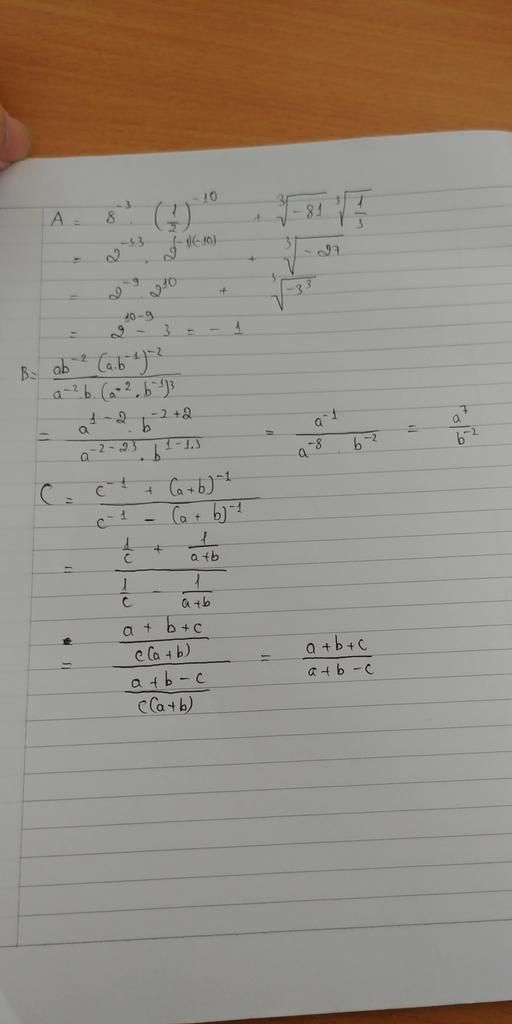 A = 8⁻³ · (1/2)⁻¹⁰ + ∛(-81) · ∛(1/3)
= 2⁻³·³ · 2⁽⁻¹⁾⁽⁻¹⁰⁾ + ∛(-27)
= 2⁻⁹ · 2¹⁰ + ∛(-3³)
= 2¹⁰⁻⁹ - 3 = -1
B = ab⁻² (a.b⁻¹)⁻² / a⁻².b.(a⁻².b⁻¹)³
= a¹⁻² · b⁻²⁺² / a⁻²⁻²·³ · b¹⁻¹·³ = a⁻¹ / a⁻⁸ · b⁻² = a⁷ / b⁻²
C = c⁻¹ + (a+b)⁻¹ / c⁻¹ - (a+b)⁻¹
= (1/c + 1/(a+b)) / (1/c - 1/(a+b))
= ((a+b+c) / c(a+b)) / ((a+b-c) / c(a+b)) = (a+b+c) / (a+b-c)